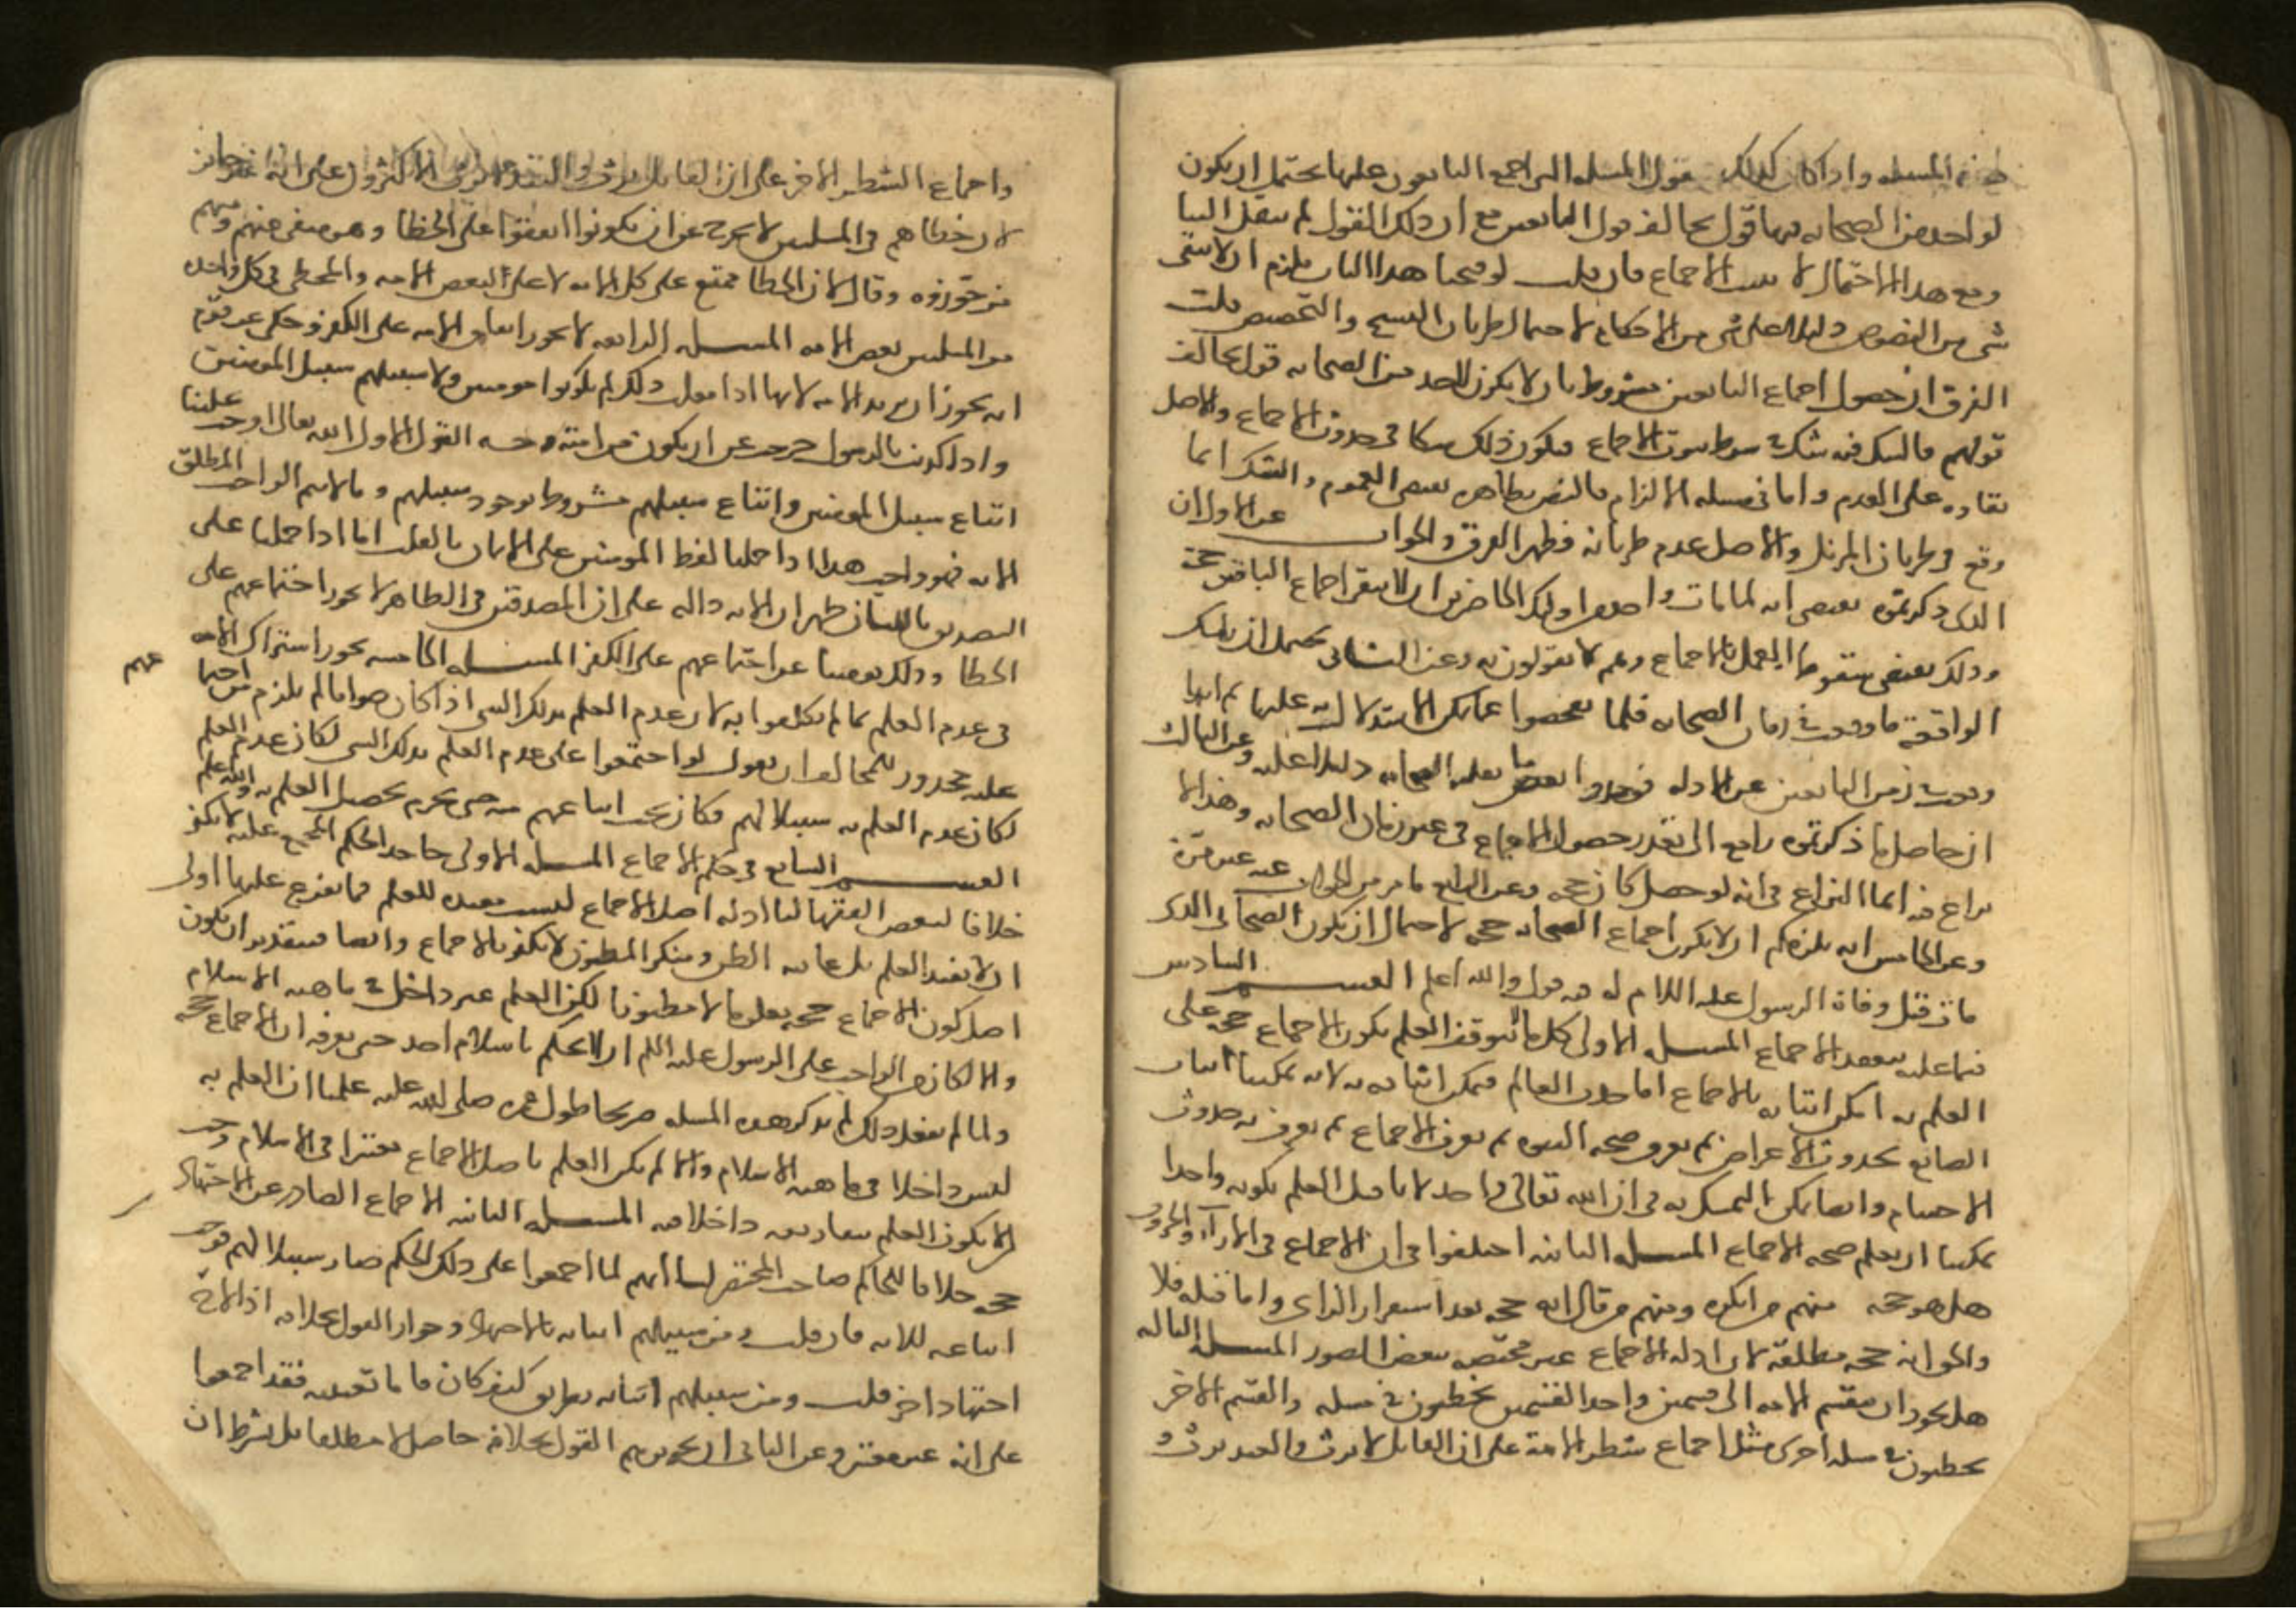 هذه المسله واذا كان كذلك فقول المسله التى اجمع التابعون عليها يحتمل ان يكون
لواحد من الصحابه فيها قول يخالف قول التابعين مع ان ذلك القول لم ينقل الينا
ومع هذا الاحتمال لا يثبت الاجماع فان قلت لو فتحنا هذا الباب يلزم ان لا يبقى
شى من النصوص دليلا على شى من الاحكام لاحتمال طريان النسخ والتخصيص قلت
الفرق ان حصول اجماع التابعين مشروط بان لا يكون لاحد من الصحابه قول يخالف
قولهم فالشك فيه شك فى شرط ثبوت الاجماع فيكون ذلك شكا فى حدوث الاجماع والاصل
بقاوه على العدم واما فى مسله الالزام فالنص بظاهره يقتضى العموم والشك انما
وقع فى طريان المزيل والاصل عدم طريانه فظهر الفرق والجواب عن الاول ان
الذى ذكرتموه يقتضى انه لما مات واحد من اوليك الحاضرين ان لا يبقى اجماع الباقين حجه
وذلك يقتضى سقوط العمل بالاجماع وهم لا يقولون به وعن الثانى يحتمل ان تلك
الواقعه ما وقعت فى زمان الصحابه فلما يفحصوا عما يمكن الاستدلال به عليها ثم انها
وقعت زمن التابعين عن الادله فوجدوا بعض ما نقله الصحابه دليلا عليه وعن الثالث
ان حاصل ما ذكرتموه راجع الى تعذر حصول الاجماع فى غير زمان الصحابه وهذا لا
نزاع فيه انما النزاع فى انه لو حصل كان حجه وعن الرابع ما مر من الجواب عنه غير مره
وعن الخامس انه يلزمكم ان لا يكون اجماع الصحابه حجه لاحتمال ان يكون الصحابى الذى
مات قبل وفاة الرسول عليه السلام له فيه قول والله اعلم القسم السادس
فيما عليه ينعقد الاجماع المسله الاولى كل ما لا يتوقف العلم بكون الاجماع حجه على
العلم به امكن اثباته بالاجماع اما حدوث العالم فيمكن اثباته به لانه يمكننا اثبات
الصانع بحدوث الاعراض ثم نعرف صحه النبوه ثم نعرف الاجماع ثم نعرف به حدوث
الاجسام وايضا يمكن التمسك به فى ان الله تعالى واحد لانا قبل العلم بكونه واحدا
يمكننا ان نعلم صحه الاجماع المسله الثانيه اختلفوا فى ان الاجماع فى الاراء والحروب
هل هو حجه منهم من انكره ومنهم من قال انه حجه بعد استقرار الراى واما قبله فلا
والحق انه حجه مطلقه لان ادله الاجماع غير مختصه ببعض الصور المسله الثالثه
هل يجوز ان تنقسم الامه الى قسمين واحد القسمين يخطيون فى مسله والقسم الاخر
يخطيون فى مسله اخرى مثل اجماع شطر الامه على ان القاتل لا يرث والعبد يرث و
واجماع الشطر الاخر على ان القاتل يرث والعبد لا يرث الاكثرون على انه غير جايز
لان خطاهم فى المسلتين لا يخرج عن ان يكونوا اتفقوا على الخطا وهو منفى عنهم ومنهم
من جوزه وقال لان الخطا ممتنع على كل الامه لا على البعض الامه والمخطى فى كل واحده
من المسلتين بعض الامه المسله الرابعه لا يجوز اتفاق الامه على الكفر وحكى عن قوم
انه يجوز ان ترتد الامه لانها اذا فعلت ذلك لم يكونوا مومنين ولا سبيلهم سبيل المومنين
واذا كذبت بالرسول خرجت عن ان يكون من امته وجه القول الاول ان الله تعالى اوجب علينا
اتباع سبيل المومنين واتباع سبيلهم مشروط بوجود سبيلهم وما لا يتم الواجب المطلق
الا به فهو واجب هذا اذا حملنا لفظ المومنين على الايمان بالقلب اما اذا حملنا على
التصديق باللسان ظهر ان الايه داله على ان المصدقين فى الظاهر لا يجوز اجتماعهم على
الخطا وذلك يومننا عن اجتماعهم على الكفر المسله الخامسه يجوز اشتراك الامه
فى عدم العلم بما لم يكلفوا به لان عدم العلم بذلك الشى اذا كان صوابا لم يلزم من اجتماعهم
عليه محذور للمخالف ان يقول لو اجتمعوا على عدم العلم بذلك الشى لكان عدم العلم
لكان عدم العلم به سبيلا لهم فكان يجب اتباعهم فيه حتى يحرم تحصيل العلم به والله اعلم
القسم السابع فى حكم الاجماع المسله الاولى جاحد الحكم المجمع عليه لا يكفر
خلافا لبعض الفقها لنا ادله اصل الاجماع ليست مفيده للعلم فما تفرع عليها اولى
ان لا يفيد العلم بل غايته الظن ومنكر المظنون لا يكفر بالاجماع وايضا فبتقدير ان يكون
اصل كون الاجماع حجه معلوما لا مظنونا لكن العلم غير داخل فى ماهيه الاسلام
والا لكان من الواجب على الرسول عليه السلم ان لا يحكم باسلام احد حتى يعرفه ان الاجماع حجه
ولما لم يفعل ذلك لم يذكر هذه المسله صريحا طول عمره صلى الله عليه علمنا ان العلم به
ليس داخلا فى ماهيه الاسلام واذا لم يكن العلم باصل الاجماع معتبرا فى الاسلام وجب
ان لا يكون العلم بتفاريعه داخلا فيه المسله الثانيه الاجماع الصادر عن الاجتهاد
حجه خلافا للحاكم صاحب المختصر لنا انهم لما اجمعوا على ذلك الحكم صار سبيلا لهم فوجب
اتباعه للايه فان قلت ومن سبيلهم اثباته بالاجتهاد وجواز القول بخلافه اذا لاح
اجتهاد اخر قلت ومن سبيلهم اثباته بطريق كيف كان فاما تعيينه فقد اجمعوا
على انه غير معتبر وعن الثانى ان تجويزهم القول بخلافه حاصل لا مطلقا بل بشرط ان